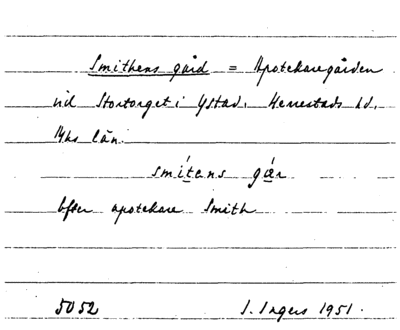 Smithens gård = Apotekaregården
vid Stortorget i Ystad. Herrestads hd,
Mhs län.
smítens gå̀r
Efter apotekare Smith
5052 I. Ingers 1951.